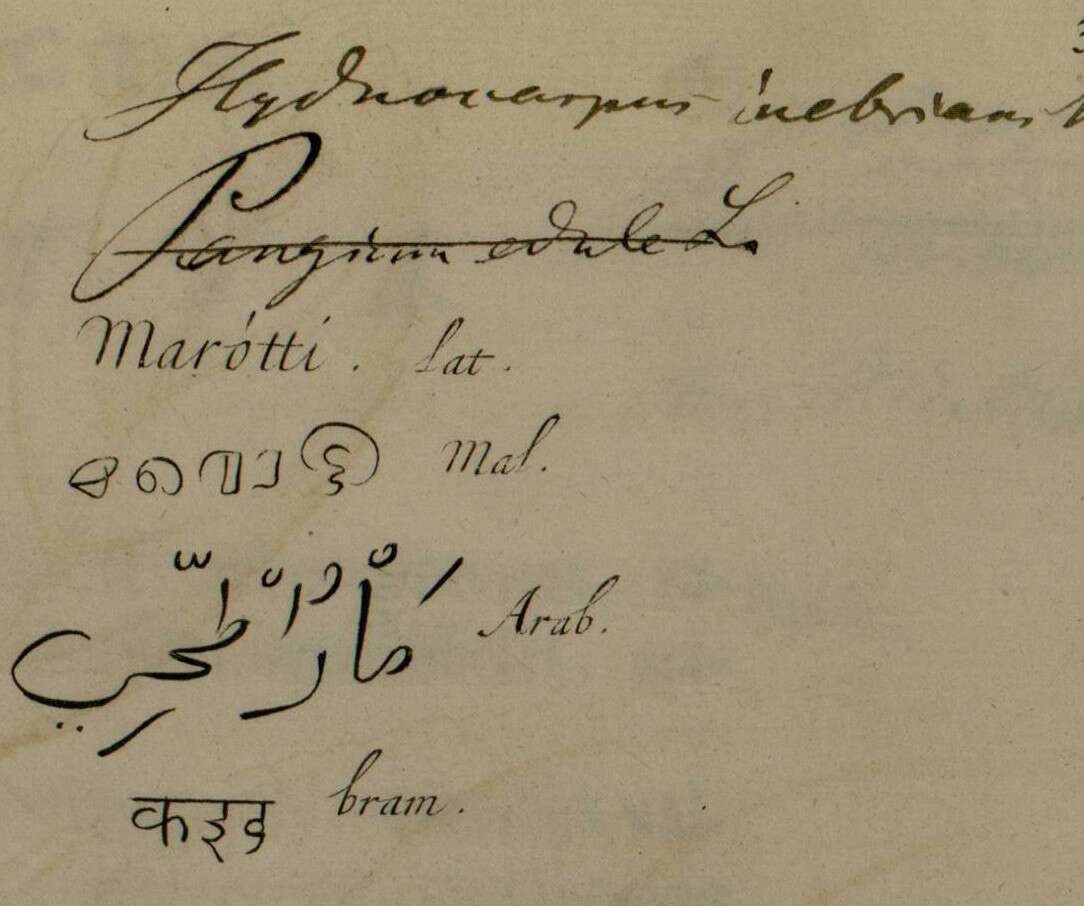 Hydnocarpus inebrians
Pangium edule L.
Marótti . Lat.
Mal.
Arab.
कइद bram .